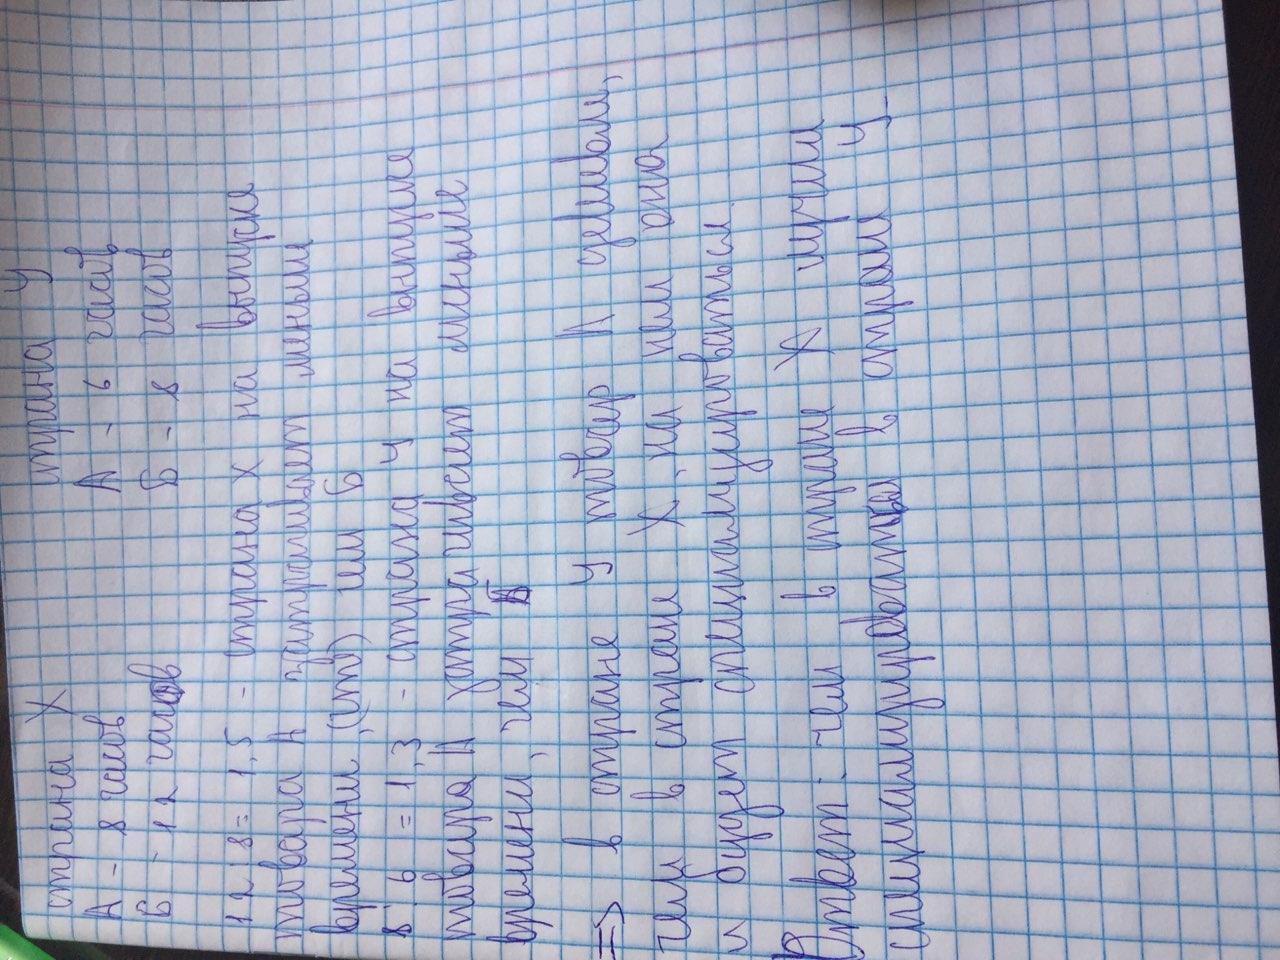 страна X страна У
А - 8 часов А - 6 часов
Б - 12 часов Б - 8 часов
12 : 8 = 1,5 - страна X на выпуске
товара А затрачивает меньше
времени, (ст) чем Б
8 : 6 = 1,3 - страна У на выпуске
товара А затрачивает меньше
времени, чем Б
=> в стране У товар А дешевле,
чем в стране X, на нем она
и будет специализироваться.
Ответ: чем в стране X
специализироваться в стране У